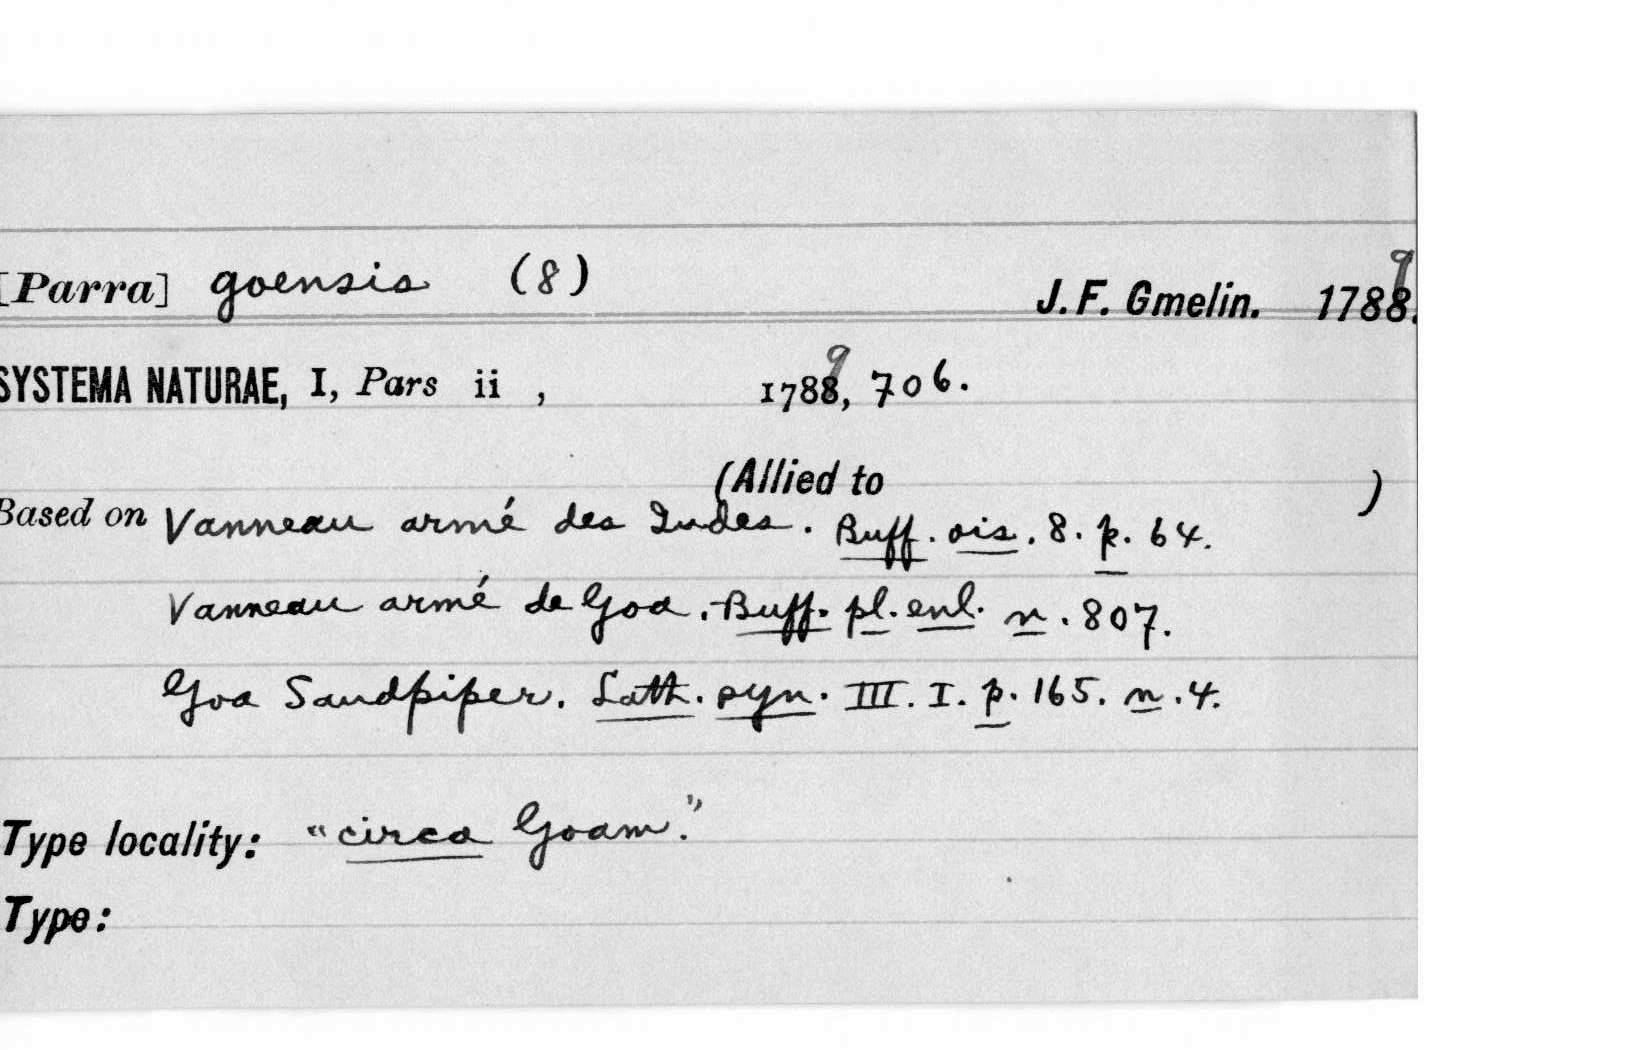 [Parra] goensis (8)
J. F. Gmelin. 1788. 9
SYSTEMA NATURAE, I, Pars ii , 1788, 9 706.
(Allied to )
Based on Vanneau armé des Indes. Buff. ois. 8. p. 64.
Vanneau armé de Goa. Buff. pl. enl. n. 807.
Goa Sandpiper. Lath. syn. III. I. p. 165. n. 4.
Type locality: "circa Goam."
Type: